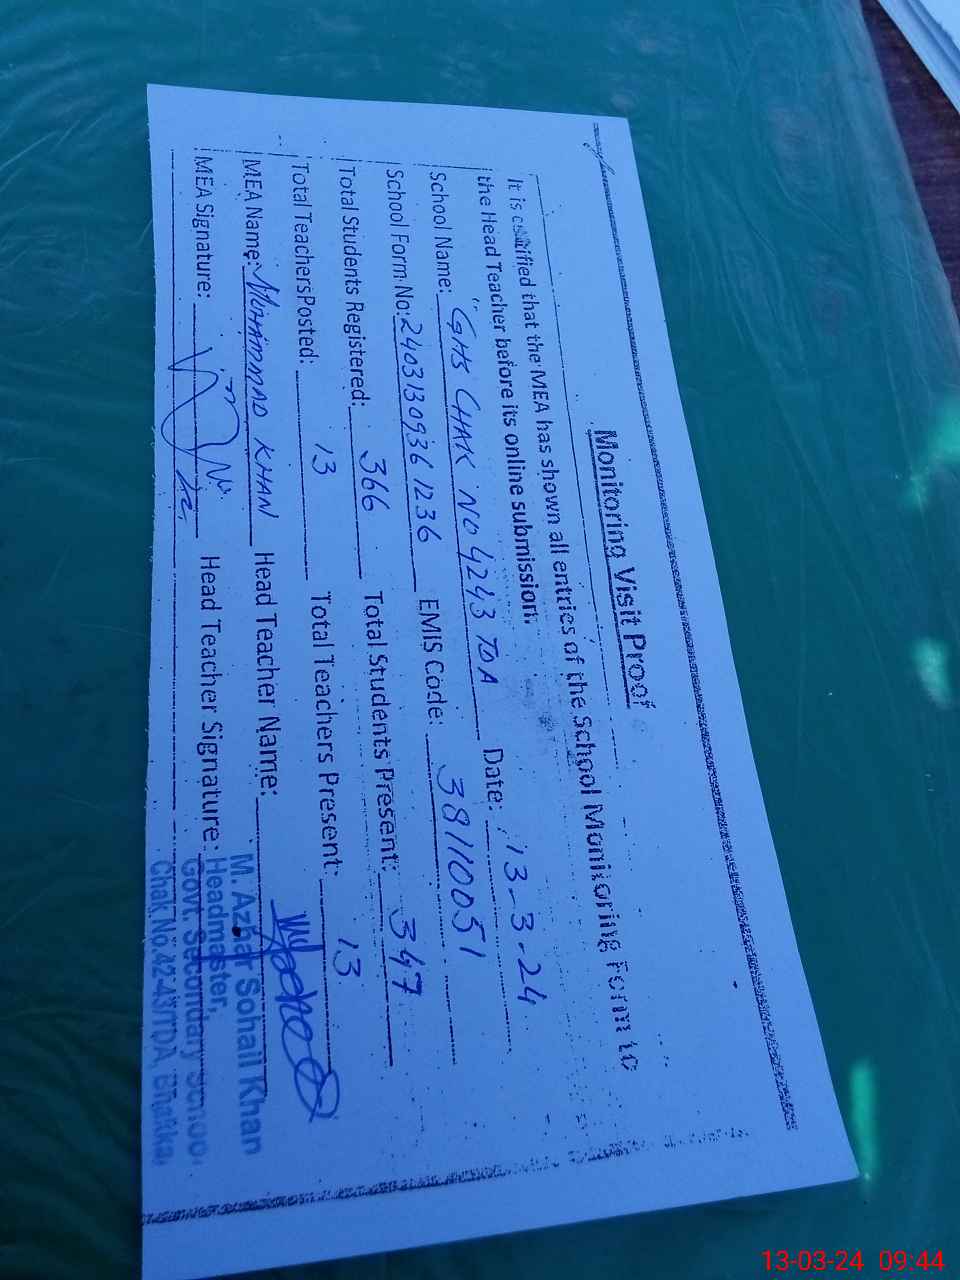 Monitoring Visit Proof
It is certified that the MEA has shown all entries of the School Monitoring Form to
the Head Teacher before its online submission.
School Name: GHS CHAK NO 4243 TDA Date: 13-3-24
School Form No: 24031309361236 EMIS Code: 38110051
Total Students Registered: 366 Total Students Present: 347
Total Teachers Posted: 13 Total Teachers Present: 13
MEA Name: MUHAMMAD KHAN Head Teacher Name:
MEA Signature: Head Teacher Signature:
M. Azhar Sohail Khan
Headmaster,
Govt. Secondary School
Chak No.42-43/TDA, Bhakkar
13-03-24 09:44